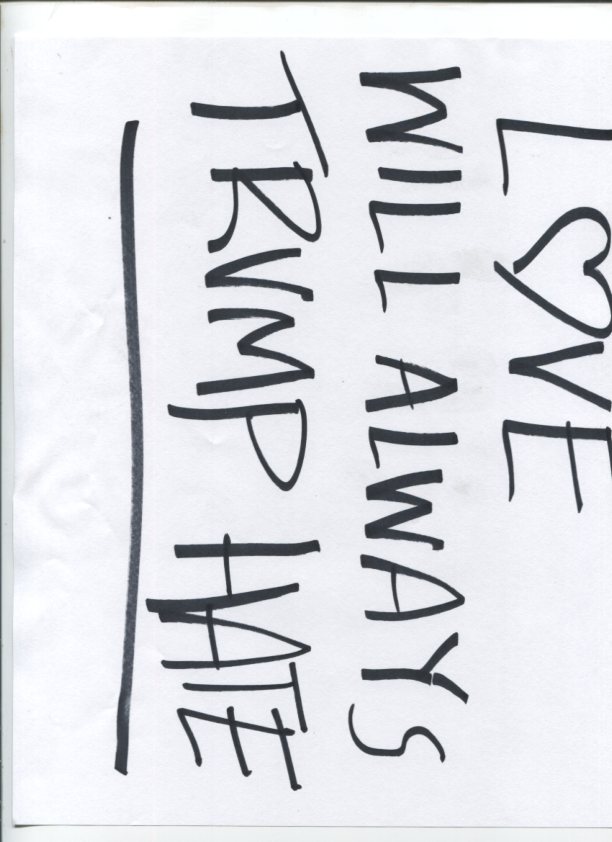 LOVE
WILL ALWAYS
TRUMP HATE